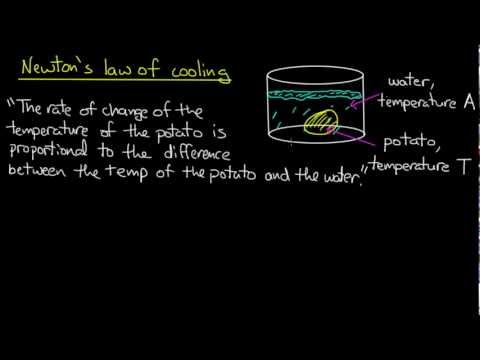 Newton's law of cooling
"The rate of change of the
temperature of the potato is
proportional to the difference
between the temp of the potato and the water."
water,
temperature A
potato,
temperature T